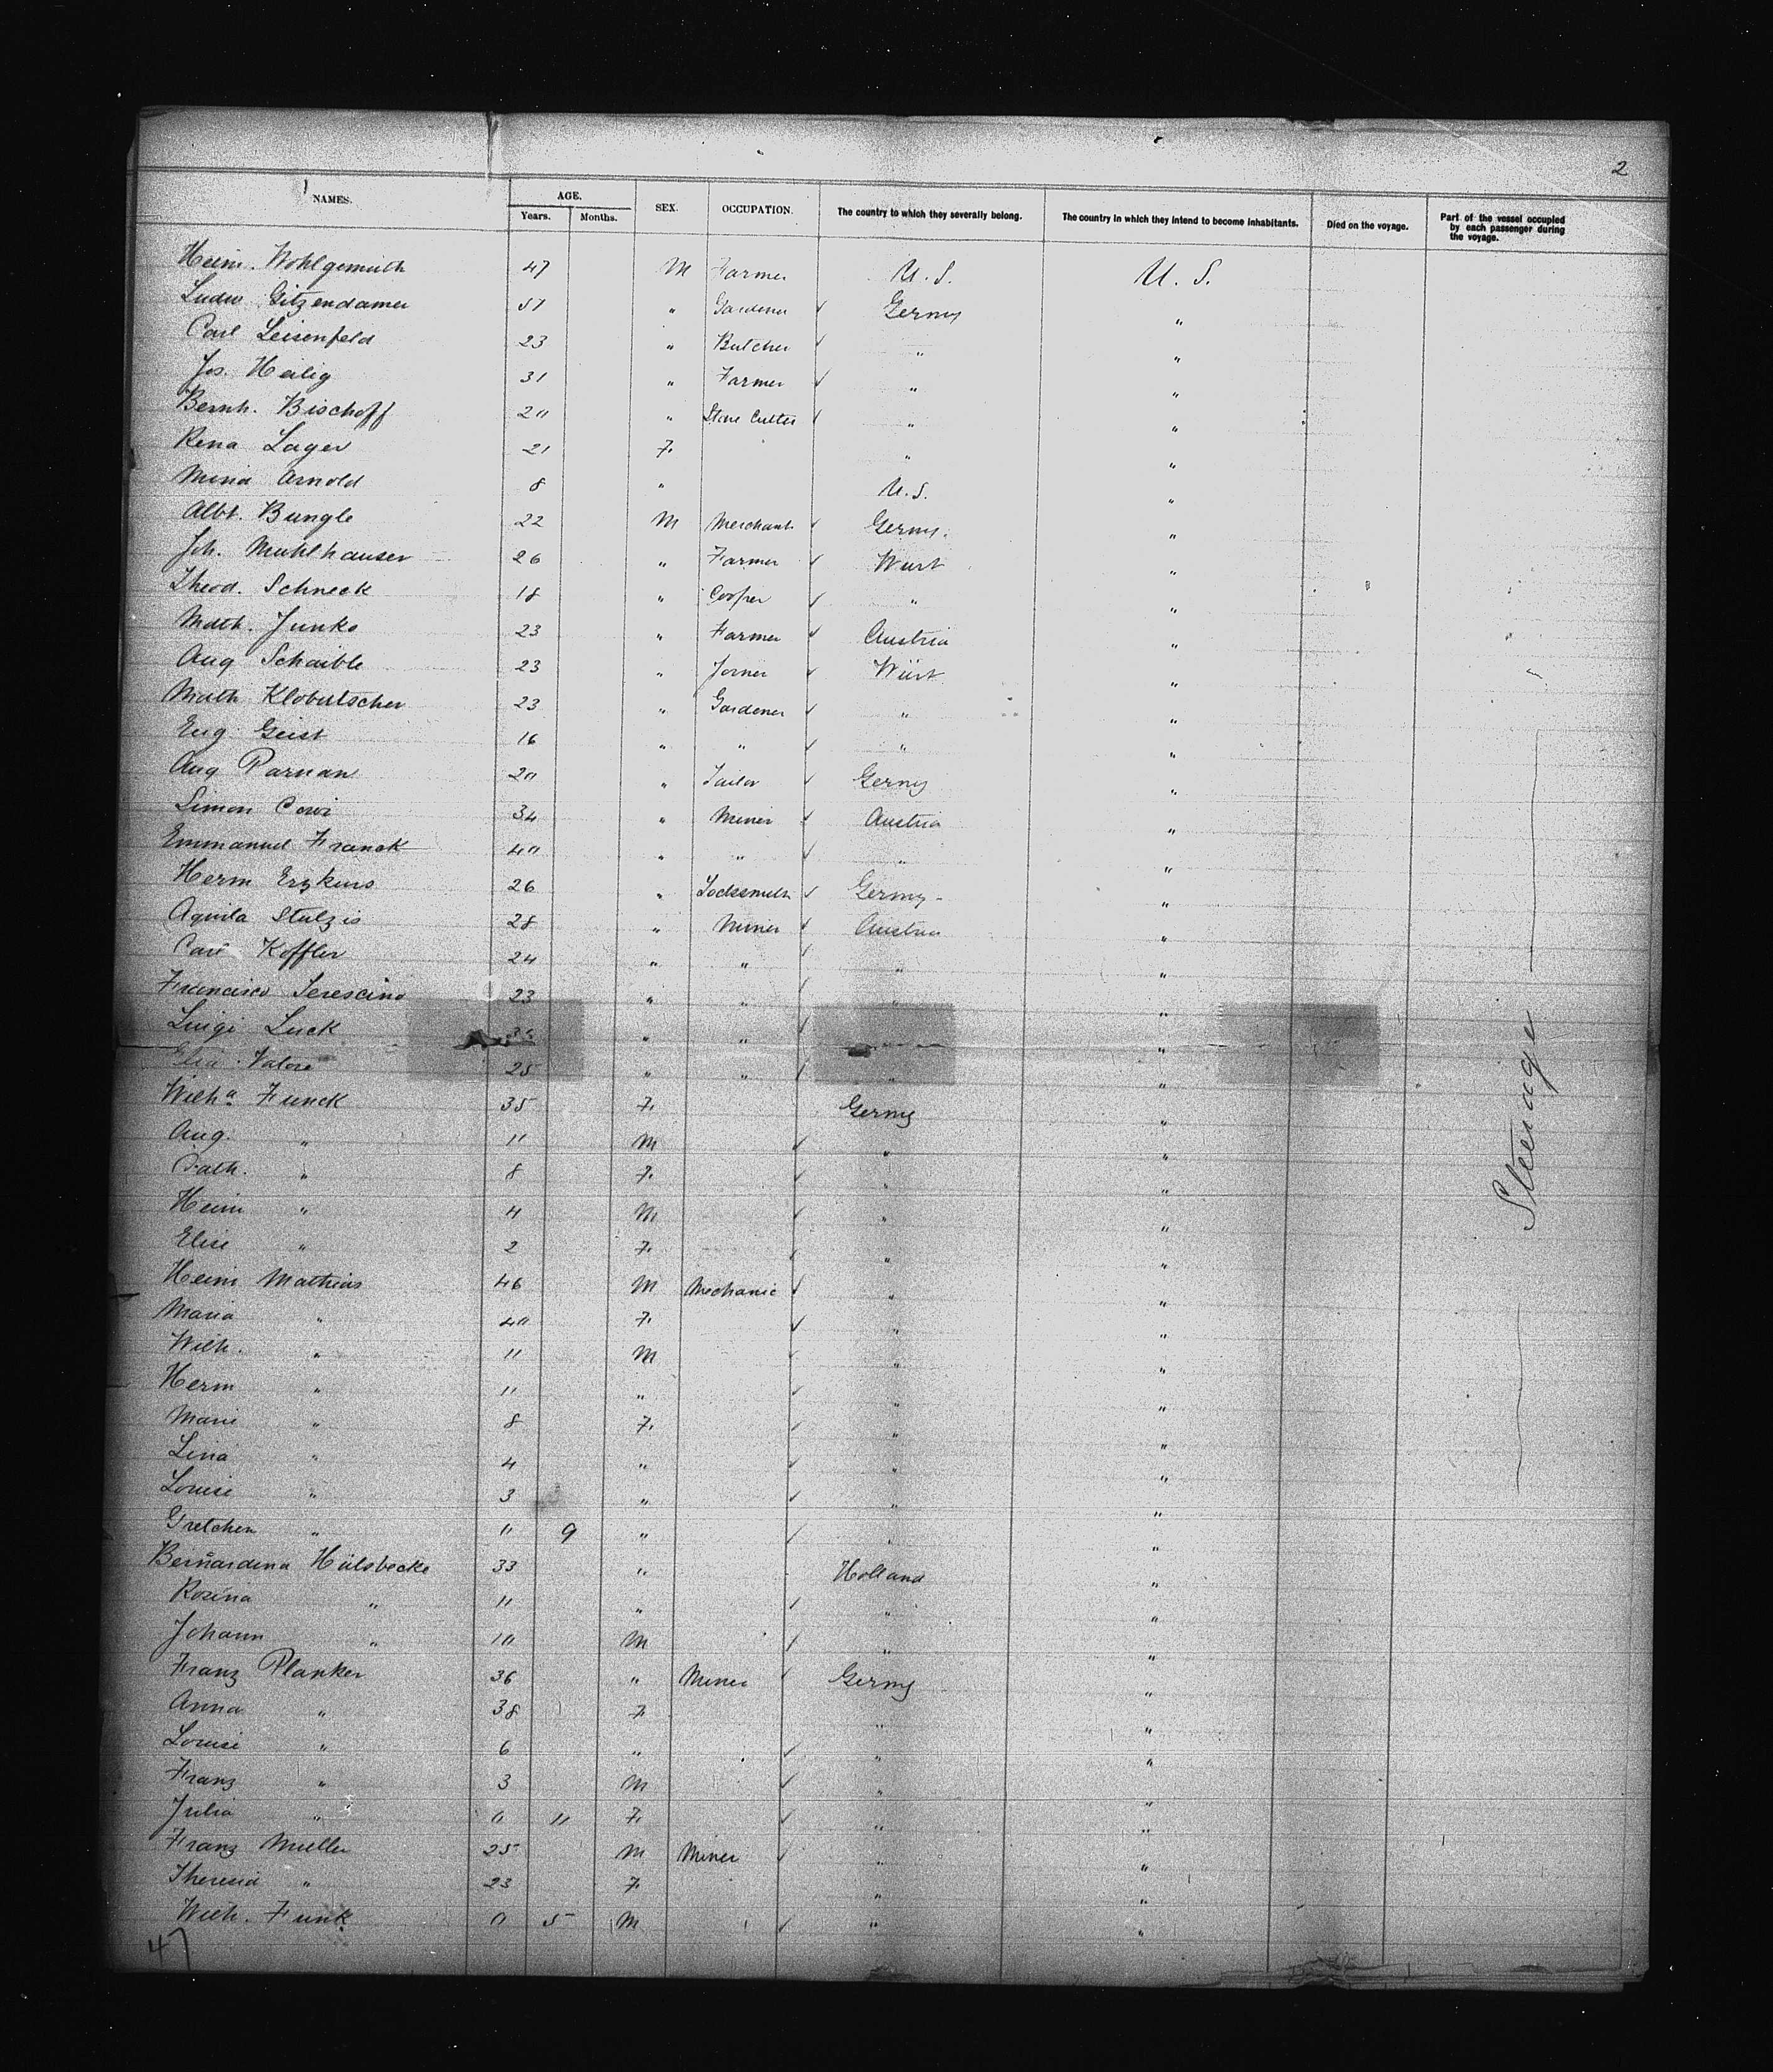 2
NAMES. AGE. SEX. OCCUPATION. The country to which they severally belong. The country in which they intend to become inhabitants. Died on the voyage. Part of the vessel occupied by each passenger during the voyage.
Years. Months.
Heinr. Wohlgemuth 47 M Farmer U.S. U.S.
Ludw Gitzendamer 51 " Gardener ✓ Germy "
Carl Leisenfeld 23 " Butcher ✓ " "
Jos. Heilig 31 " Farmer ✓ " "
Bernh. Bischoff 20 " Stone Cutter ✓ " "
Rena Lager 21 F. " "
Mina Arnold 8 " U.S. "
Albt. Bungle 22 M Merchant ✓ Germy. "
Joh. Muhlhauser 26 " Farmer ✓ Wurt "
Theod. Schneck 18 " Cooper ✓ " "
Math. Junko 23 " Farmer ✓ Austria "
Aug Schaible 23 " Joiner ✓ Würt "
Math Klobutscher 23 " Gardener ✓ " "
Eug. Geist 16 " " ✓ " "
Aug Parnan 20 " Tailor ✓ Germy "
Simon 34 " Miner ✓ Austria "
Emmanuel Franck 40 " " ✓ " "
Herm 26 " Locksmith ✓ Germy "
Aquila Stulzis 28 " Miner ✓ Austria "
Carl Koffler 24 " " ✓ " "
Francisco Serescino 23 " " ✓ " "
Luigi Luck " " ✓ "
Valore 25 " " ✓ " "
Wilhª Funck 35 F. Germy "
Aug. " 11 M ✓ " "
Cath. " 8 F. ✓ " "
Heinr " 4 M ✓ " "
Elise " 2 F. ✓ " "
Heinr Mathias 46 M Mechanic ✓ " "
Maria " 40 F. ✓ " "
Wilh. " 11 M ✓ " "
Herm " 11 " ✓ " "
Marie " 8 F. ✓ " "
Lina " 4 " ✓ " "
Louise " 3 " ✓ " "
Gretchen " 0 9 " ✓ " "
Bernardina Hülsbecke 33 " Holland "
Rosina " 11 " ✓ " "
Johann " 10 M ✓ " "
Franz Planker 36 " Miner ✓ Germy "
Anna " 38 F " "
Louise " 6 " ✓ " "
Franz " 3 M ✓ " "
Julia " 0 11 F. ✓ " "
Franz Muller 25 M Miner ✓ " "
Theresia " 23 F. " "
Wilh. Funk 0 5 M ✓ " "
Steerage
47